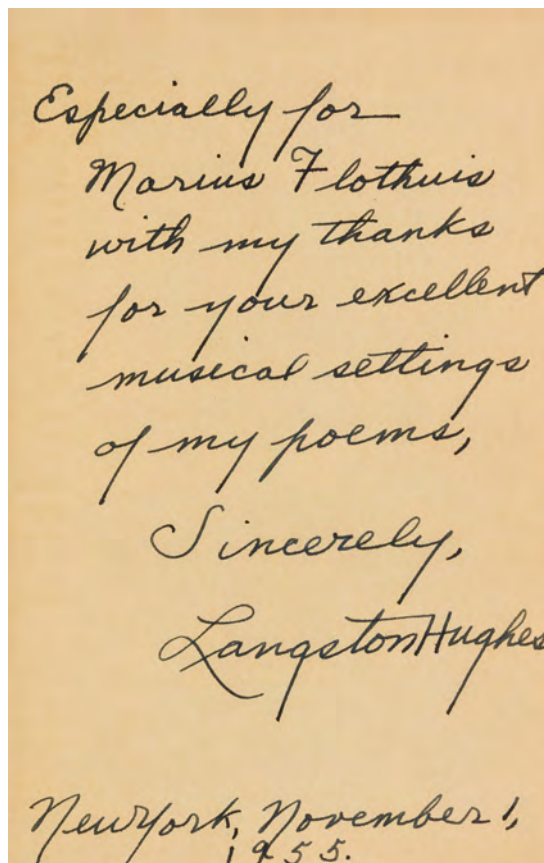 Especially for
Marius Flothuis
with my thanks
for your excellent
musical settings
of my poems,
Sincerely,
Langston Hughes
New York, November 1,
1955.